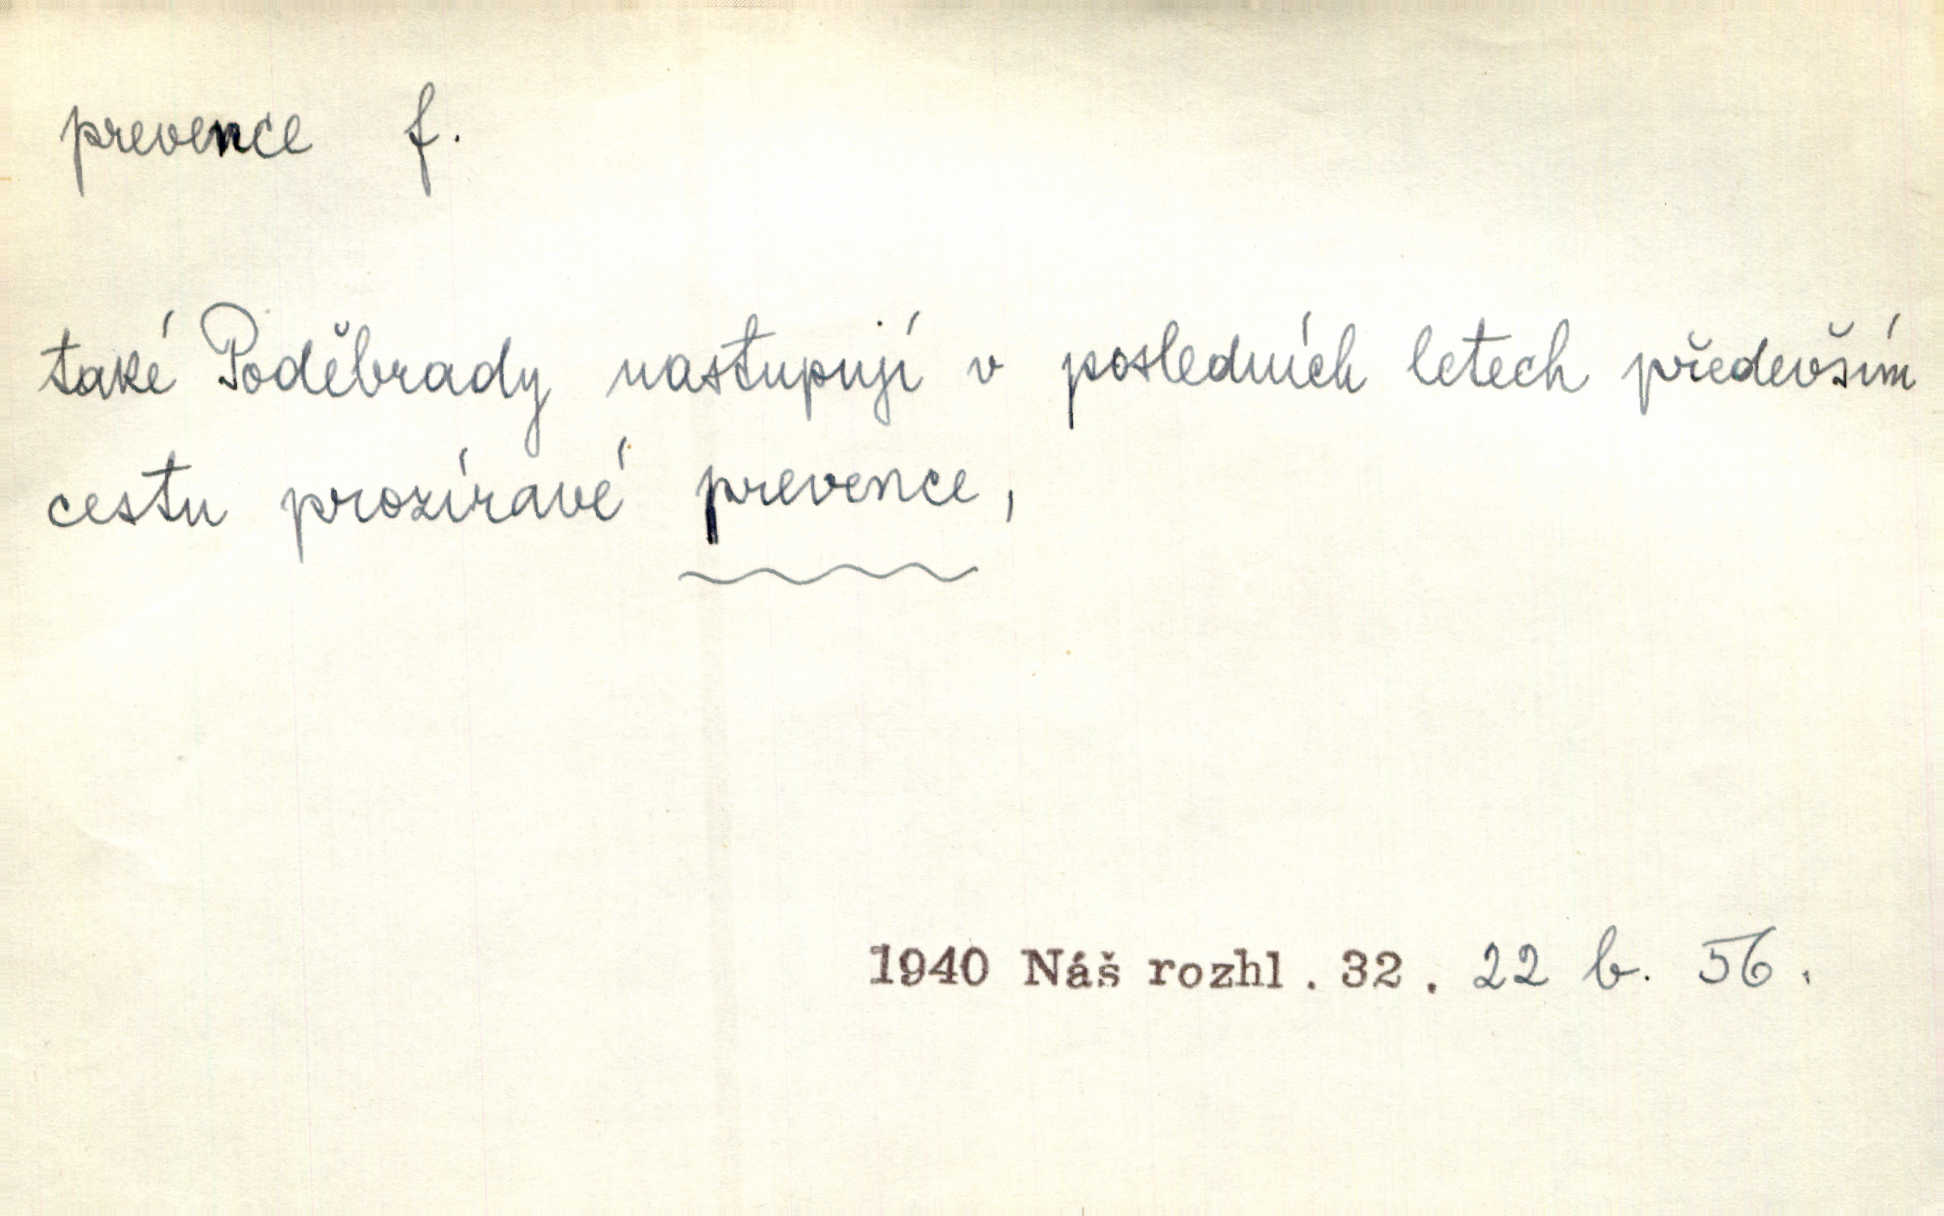 prevence f.
také Poděbrady nastupují v posledních letech především
cestu prozíravé prevence,
1940 Náš rozhl. 32. 22 b. 56.